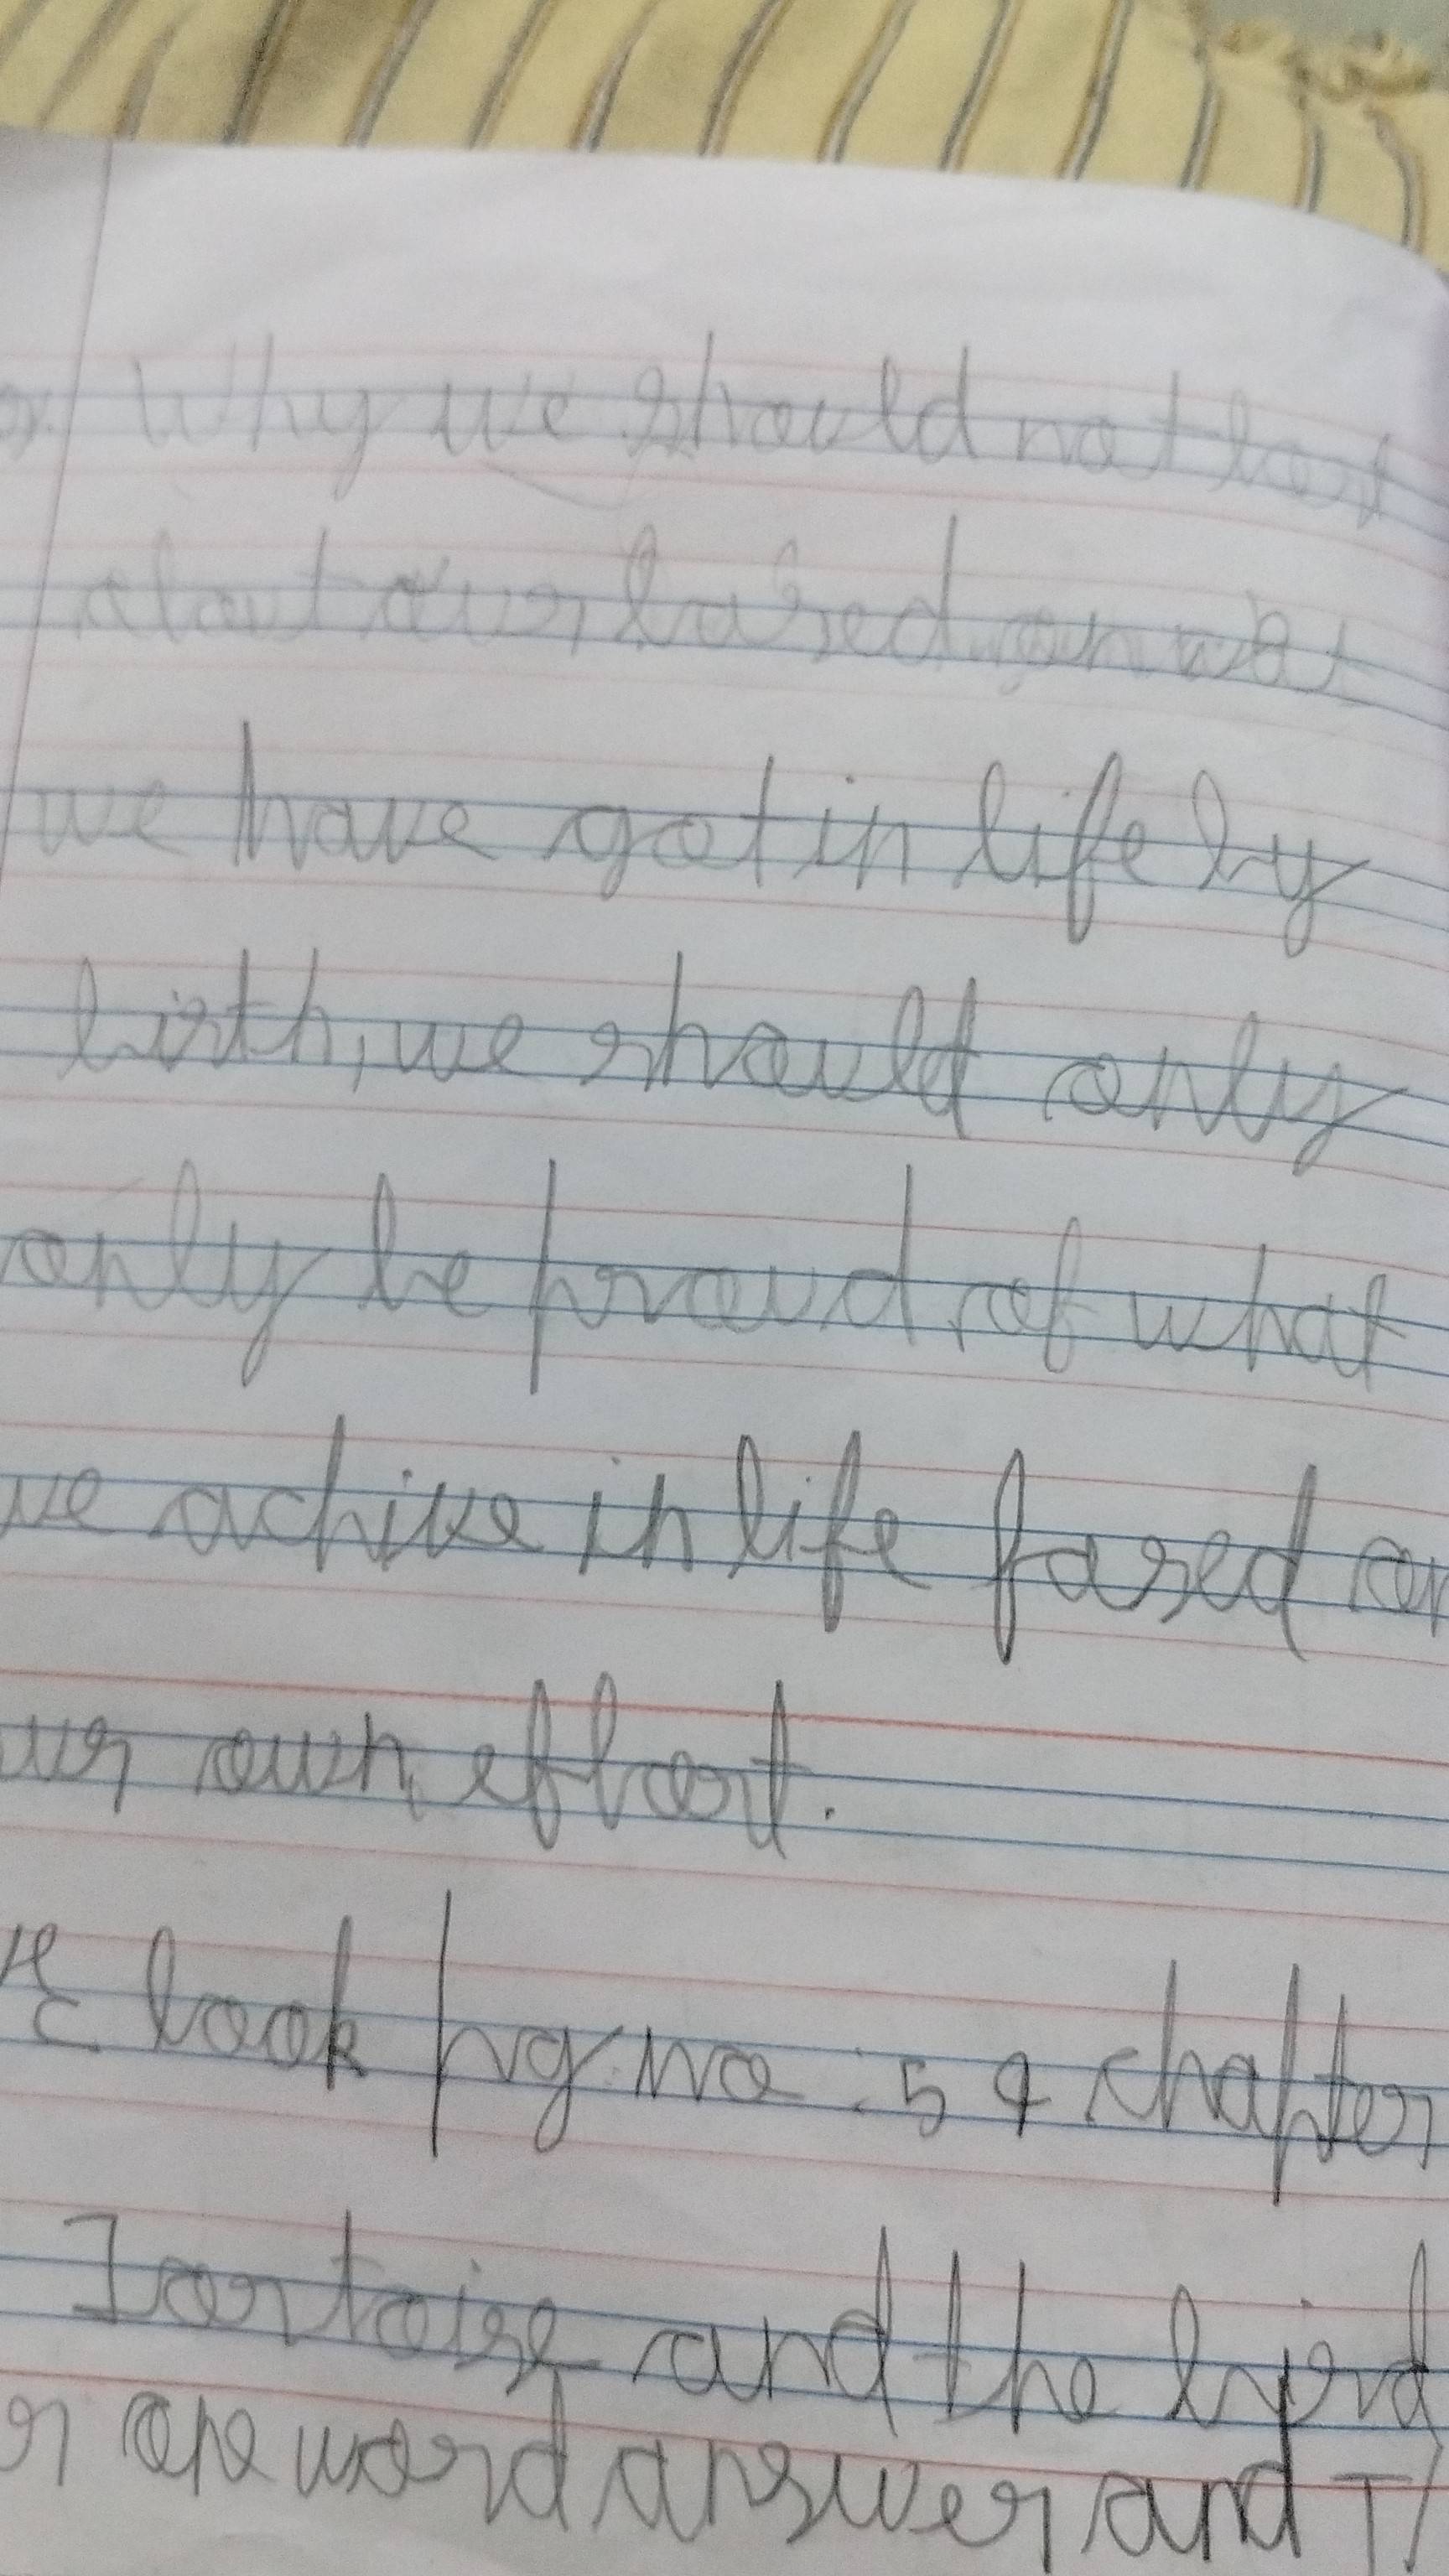 Why we should not
about our based on wat
we have got in life by
birth, we should only
only be proud of what
we achive in life fased on
our own effort.
look pg no : 54 chapter
Tortoise and the bird
one word answer and T/